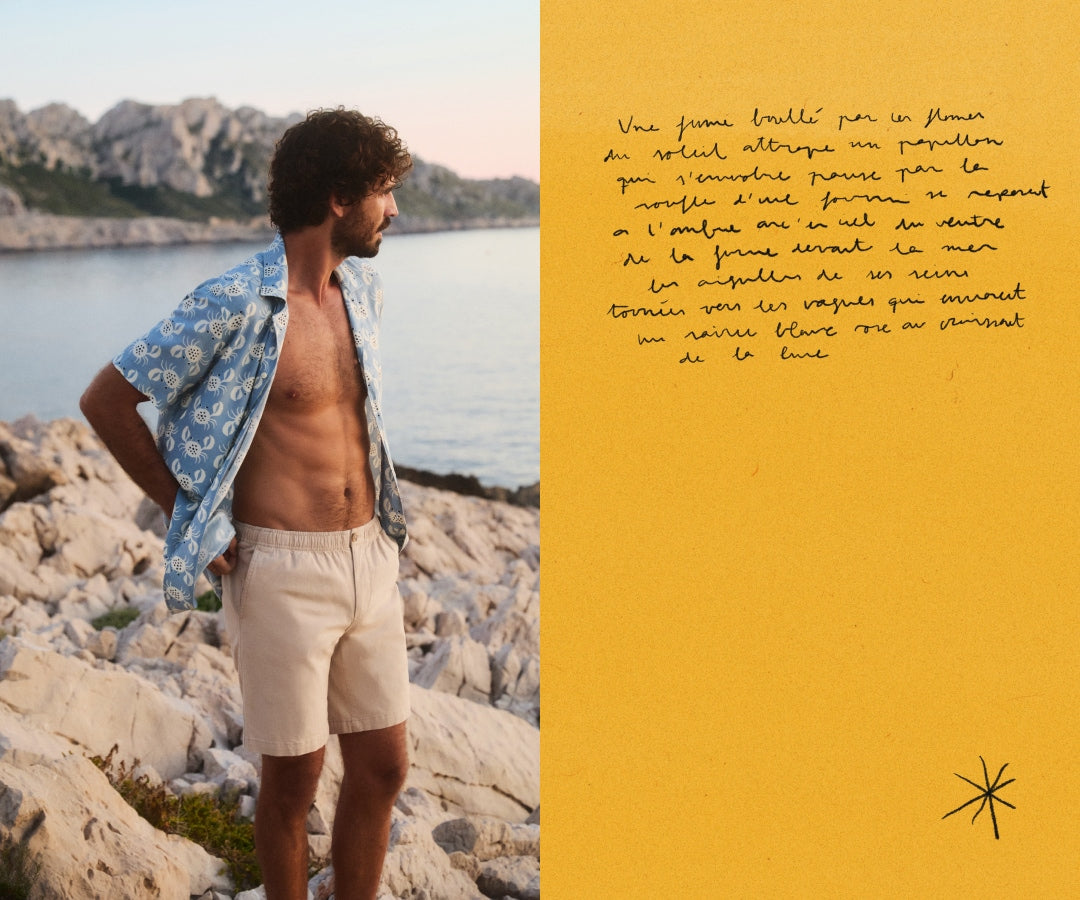 Une femme brûlé par les flammes
du soleil attrape un papillon
qui s'envole pause par la
souffle d'une fourmi se reposant
a l'ombre arc en ciel du ventre
de la femme devant la mer
les aiguilles de ses seins
tournées vers les vagues qui envoient
un blanc rose au croissant
de la lune